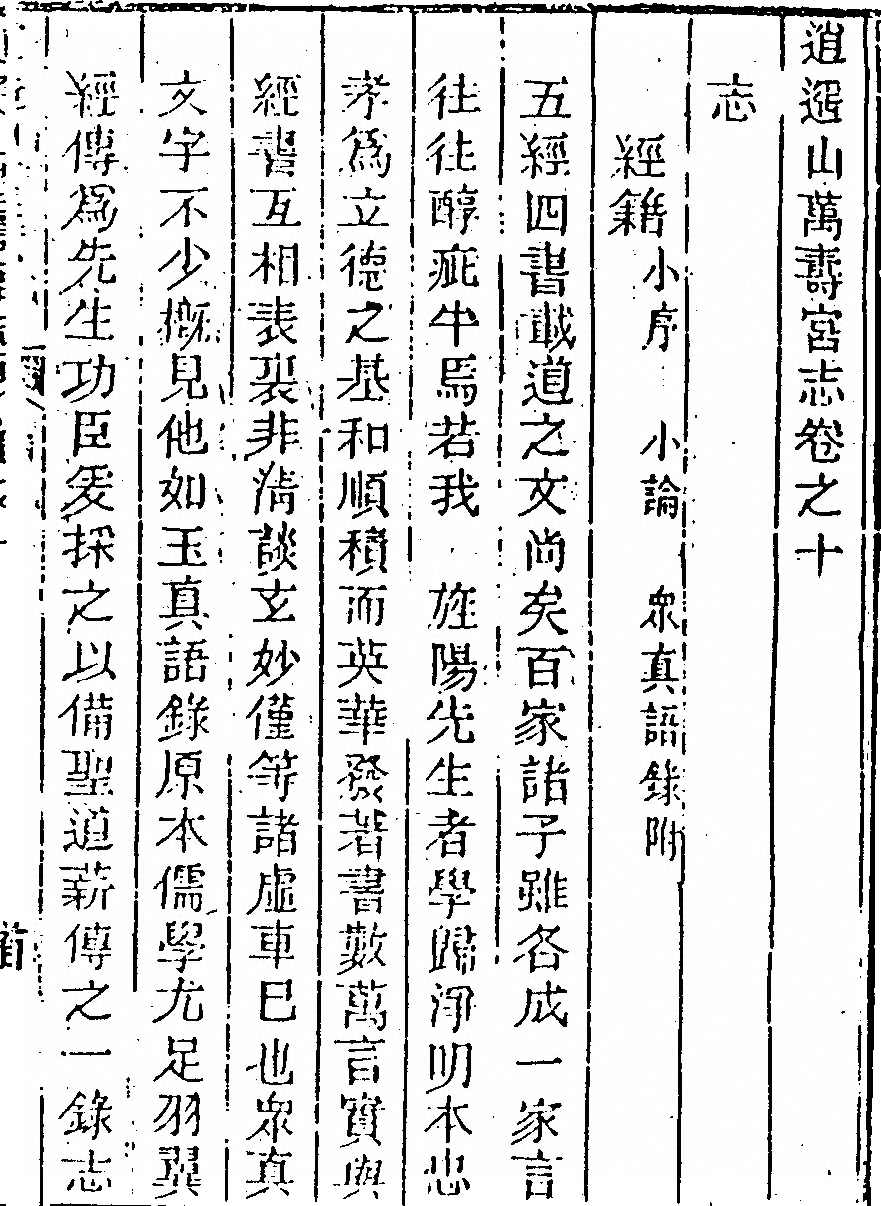 逍遥山萬壽宮志卷之十
志
經籍 小序 小論 衆真語錄附
五經四書載道之文尚矣百家諸子雖各成一家言
往往醇疵半焉若我 旌陽先生者學歸淨明本忠
孝爲立德之基和順積而英華發著書數萬言實與
經書互相表裏非淸談玄妙僅等諸虛車已也衆真
文字不少概見他如玉真語錄原本儒學尤足羽翼
經傳爲先生功臣爰採之以備聖道薪傳之一錄志